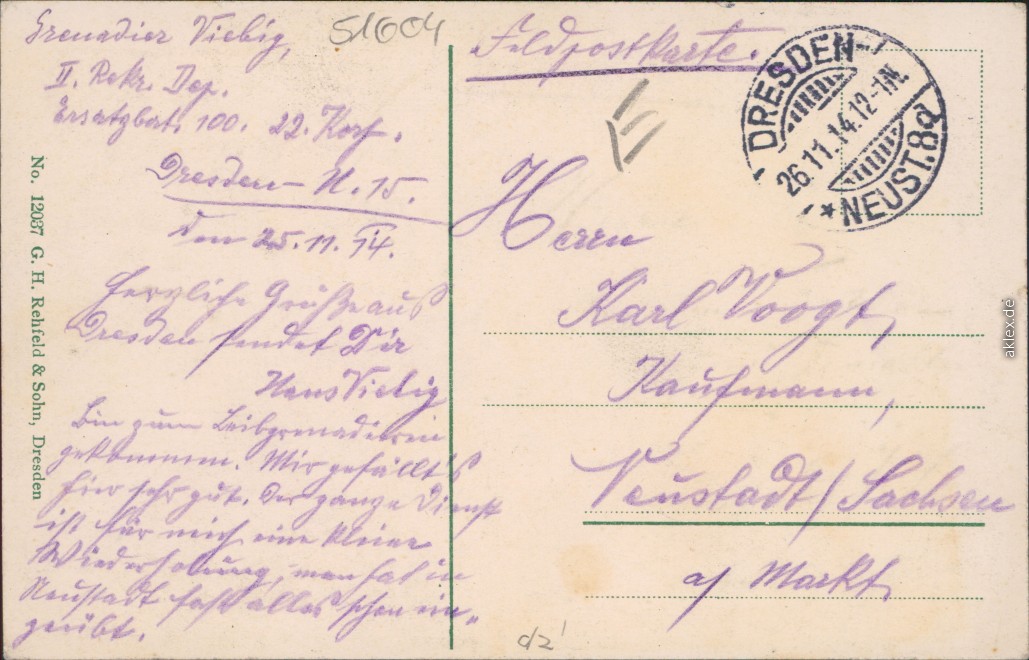 Grenadier Viebig,
II. Rekr. Dep.
Ersatzbat. 100. 22. Korp.
Dresden-N. 15.
den 25.11.14.
Herzliche Grüße aus
Dresden sendet Dir
Hans Viebig
Bin zum Leibgrenadieren
gekommen. Mir gefällt's
hier sehr gut. Der ganze Dienst
ist für mich eine kleine
Wiederholung, man hat in
Neustadt fast alles schon ein-
geübt.
51604
Feldpostkarte.
DRESDEN-
26.11.14.12-1N.
* NEUST. 8d
Herrn
Karl Voogt,
Kaufmann,
Neustadt/Sachsen
a/ Markt
No. 12037 G. H. Rehfeld & Sohn, Dresden
aklex.de